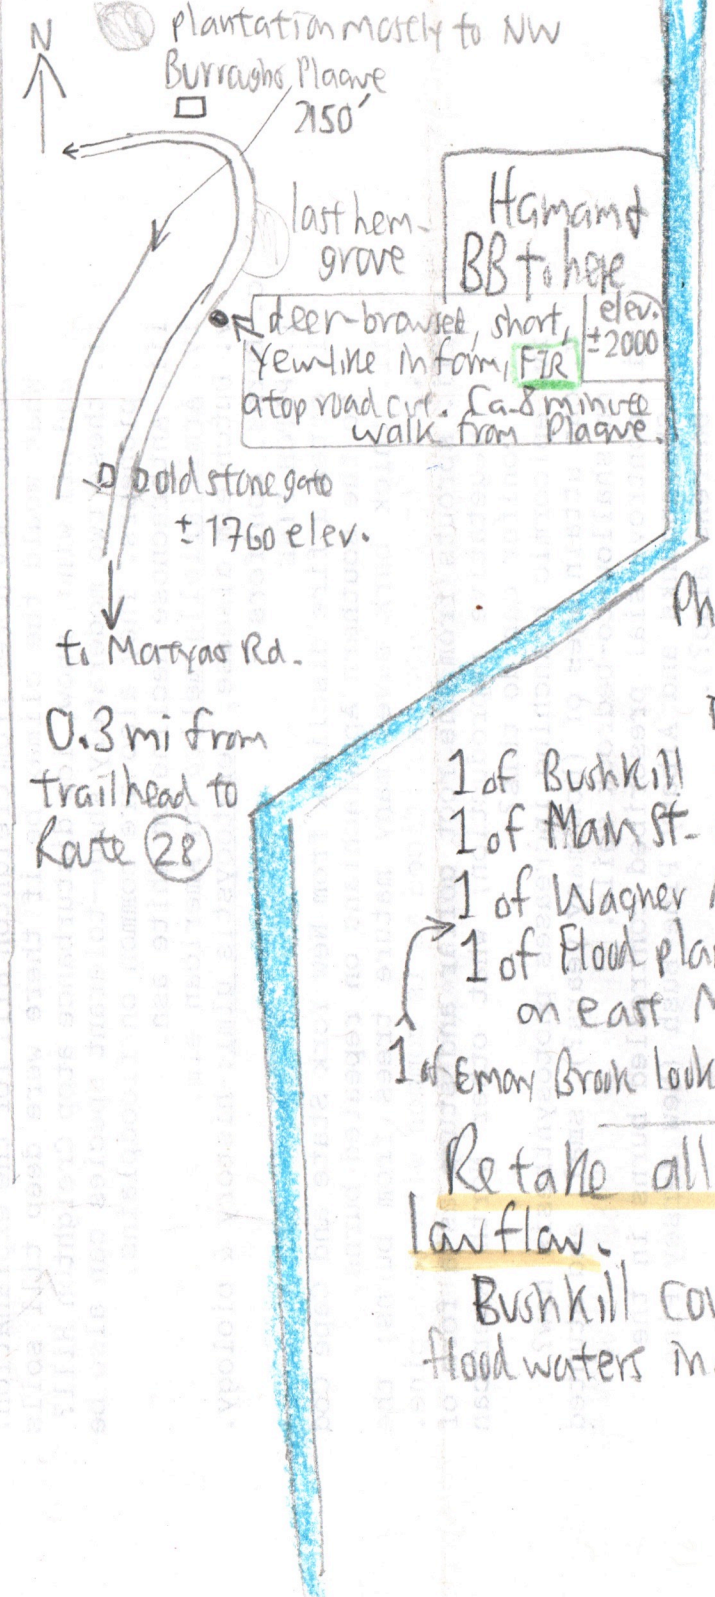 N
plantation mostly to NW
Burroughs Plaque
2150'
last hem-
grove
Hamam &
BB to here
elev.
±2000
deer-browsed, short,
Yew-like in form, FIR
atop road cut. Ca. 8 minute
walk from Plaque.
old stone gate
± 1760 elev.
to Rd.
0.3 mi from
trailhead to
Route 28
Ph
1 of Bushkill
1 of Main St.
1 of Wagner
1 of Flood pla
on east
1 of Emory Brook look
Retake all
low flow.
Bushkill cov
flood waters in